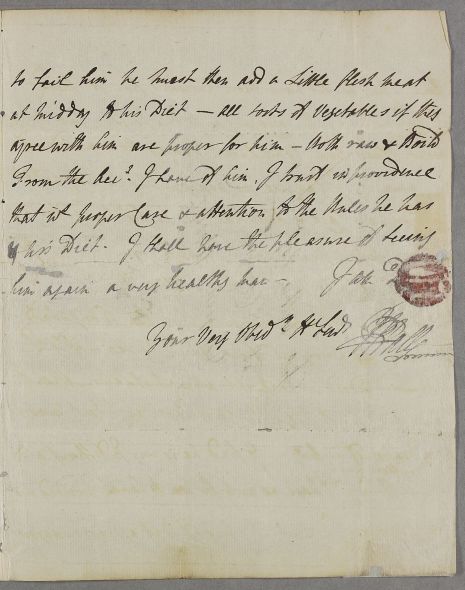 to fail him he must then add a Little flesh meat
at midday to his Diet — all sorts of vegetables if they
agree with him are proper for him — both raw & Boild
From the Acct. I have of him, I trust in providence
that wt proper Care & attention to the Rules he has
his Diet. I shall have the pleasure of seeing
him again a very healthy man — I am D
Your Very Obedt. H